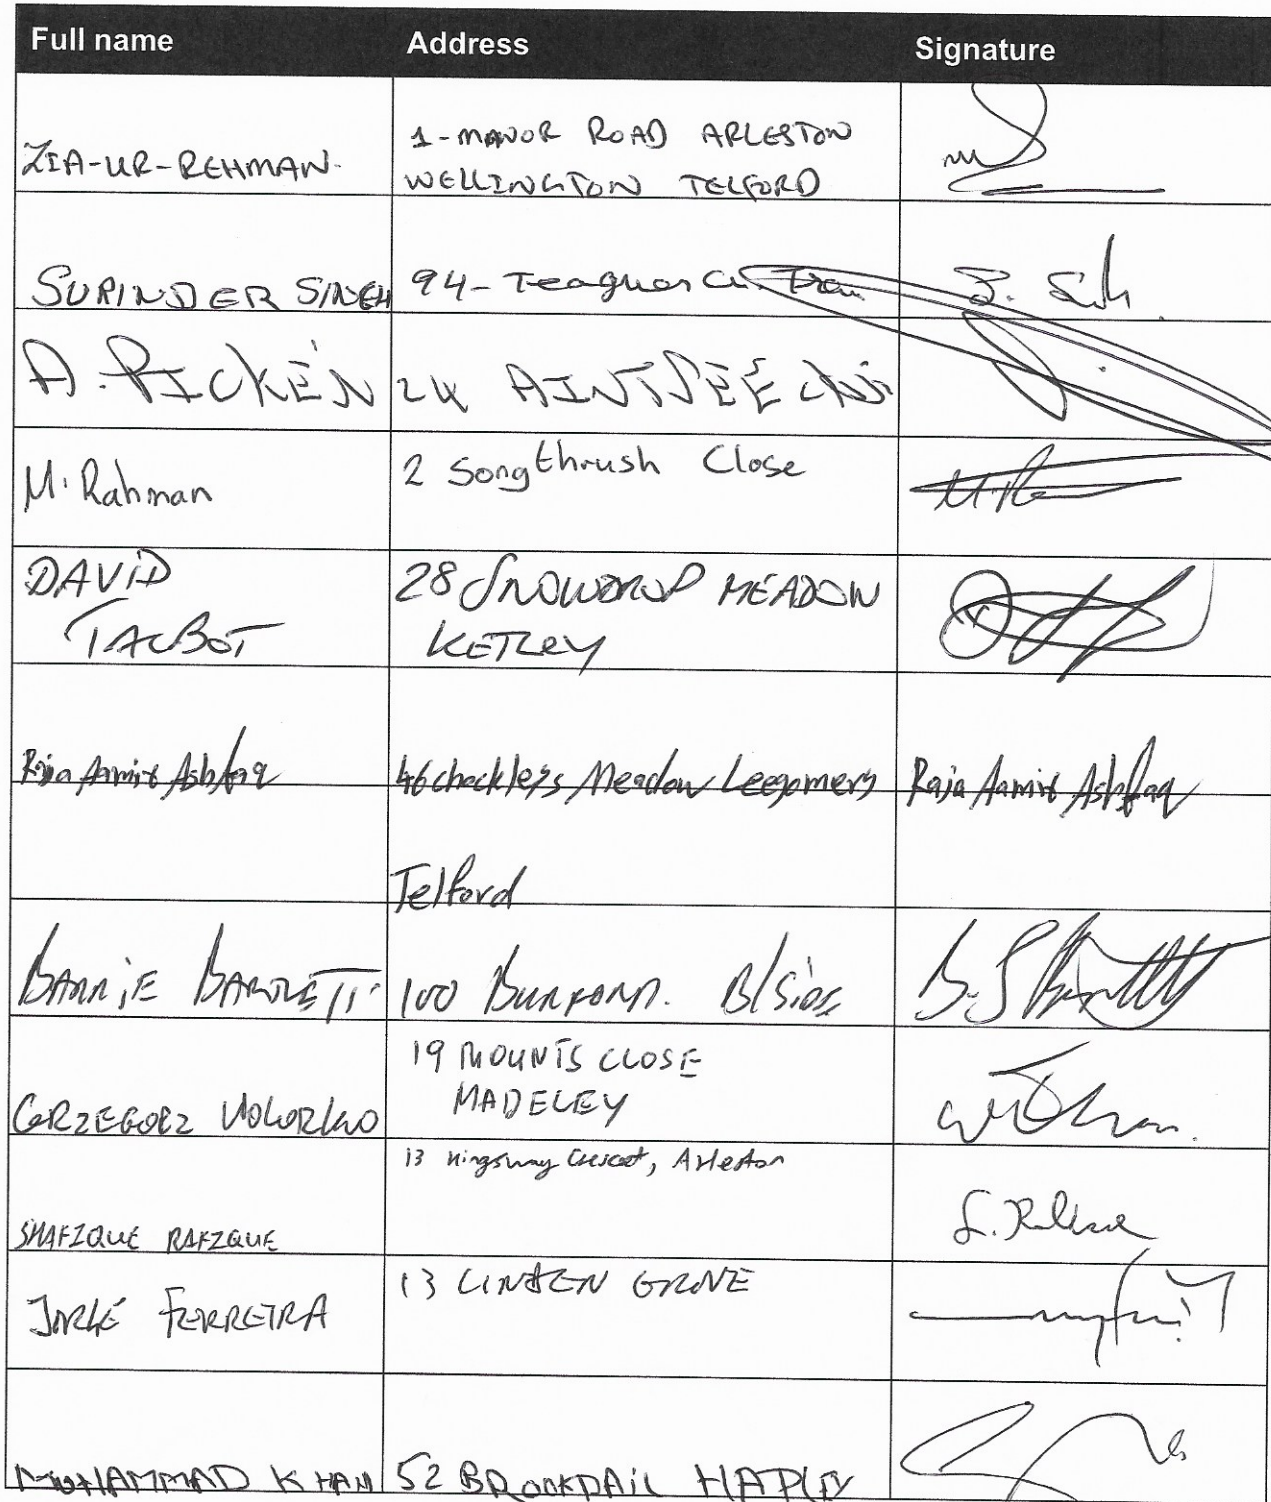 Full name Address Signature
ZIA-UR-REHMAN.
1-MANOR ROAD ARLESTON
WELLINGTON TELFORD
SURINDER SINGH 94-Teagues
S.
A. PICKEN 24 AINTREE
M. Rahman 2 Songthrush Close
DAVID
TALBOT
28 SNOWDROP MEADOW
KETLEY
Raja Aamir Ashfaq 46 checkleys Meadow Leegomery Raja Aamir Ashfaq
Telford
BARRIE BARRETT. 100 BURFORD. B/Side
19 MOUNTS CLOSE
MADELEY
GRZEGORZ
13 Kingsway Crescent, Arleston
SHAFIQUE RAFIQUE
JORGE FERREIRA 13 LINDEN GROVE
MUHAMMAD KHAN 52 BROOKDAIL HADLEY